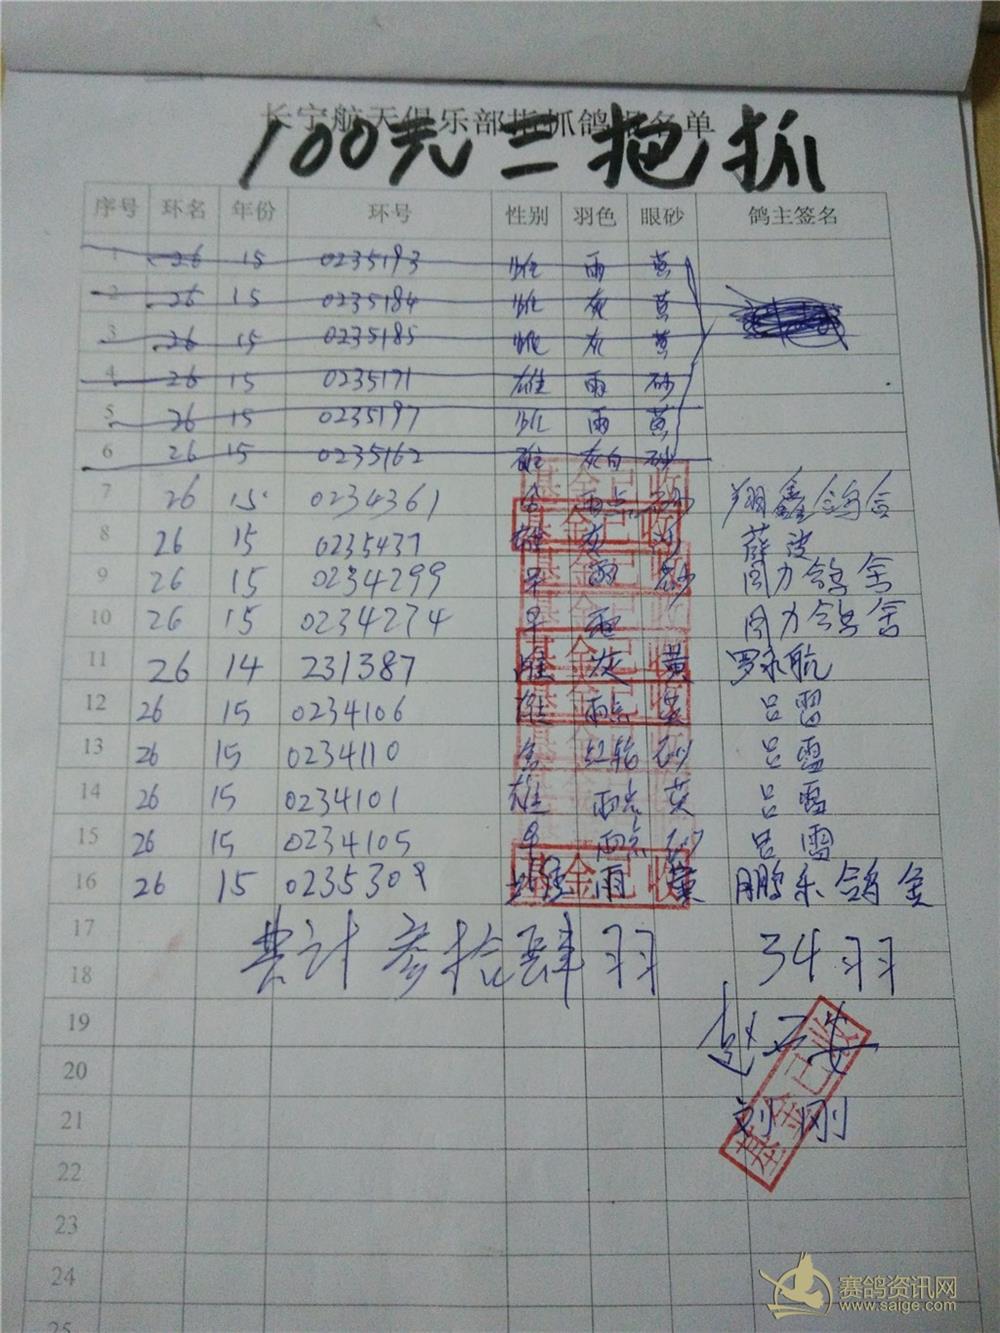 长宁航天俱乐部指抓鸽 名单
100元三把抓
序号 环名 年份 环号 性别 羽色 眼砂 鸽主签名
1 26 15 0235193 雌 雨 黄
2 26 15 0235184 雌 灰 黄
3 26 15 0235185 雌 灰 黄
4 26 15 0235171 雄 雨 砂
5 26 15 0235197 雌 雨 黄
6 26 15 0235162 雄 灰白 砂
7 26 15 0234361 雨点 砂 翔鑫鸽舍
8 26 15 0235437 雄 灰 砂 薛波
9 26 15 0234299 雨 砂 同力鸽舍
10 26 15 0234274 同力鸽舍
11 26 14 231387 雄 灰 黄 罗永航
12 26 15 0234106 雄 雨点 黄 吕雷
13 26 15 0234110 红轮 砂 吕雷
14 26 15 0234101 雄 雨点 黄 吕雷
15 26 15 0234105 雨点 砂 吕雷
16 26 15 0235309 雄 雨 黄 鹏乐鸽舍
基金已收
17
共计叁拾肆羽 34羽
18
19
赵
20
21 刘刚
基金已收
22
23
24
25
赛鸽资讯网
www.saige.com